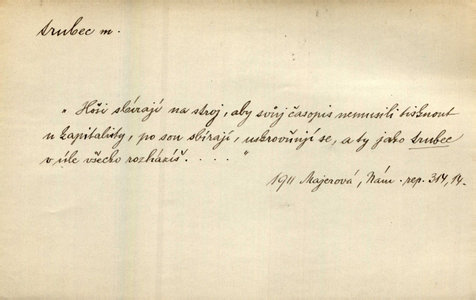 trubec m.
„ Hoši sbírají na stroj, aby svůj časopis nemusili tisknout
u kapitalisty, po sou sbírají, uskrovňují se, a ty jako trubec
v úle všecko rozházíš. . . . . "
1911 Majerová, Nám. rep. 314,14.